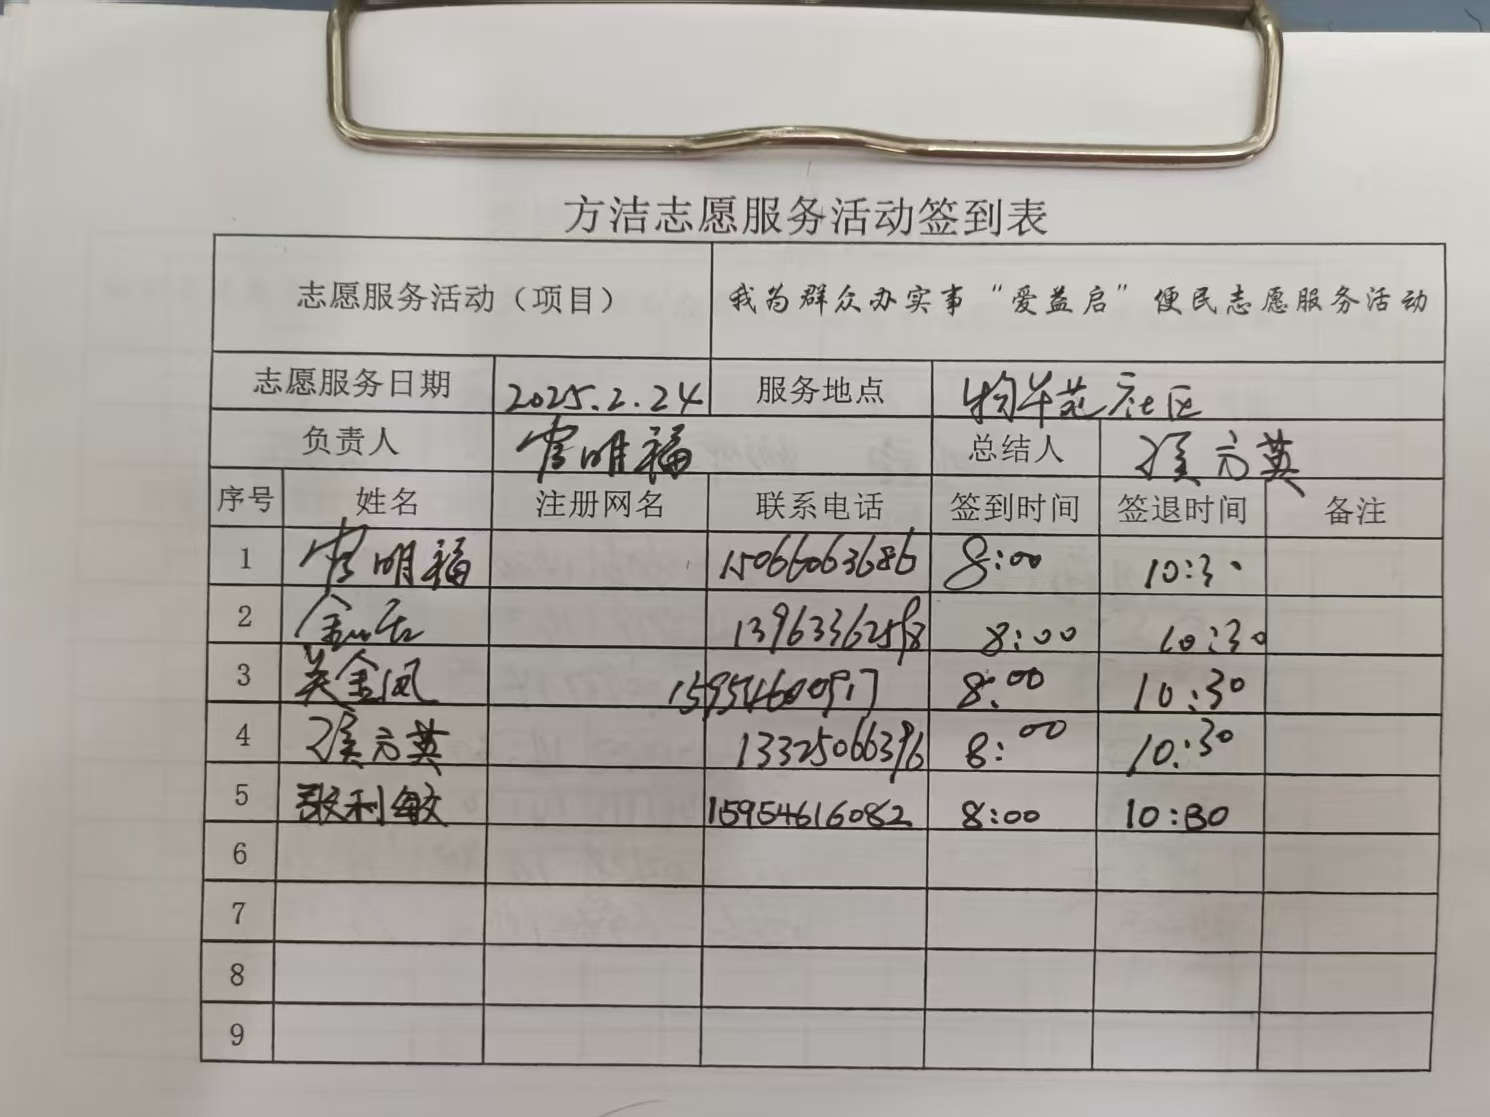 方洁志愿服务活动签到表
志愿服务活动（项目） 我为群众办实事“爱益启”便民志愿服务活动
志愿服务日期 2025.2.24 服务地点 物华苑社区
负责人 明福 总结人 方英
序号 姓名 注册网名 联系电话 签到时间 签退时间 备注
1 明福 15066063686 8:00 10:30
2 8:00 10:30
3 吴金凤 15954600917 8:00 10:30
4 方英 13325066396 8:00 10:30
5 利敏 15954616082 8:00 10:30
6
7
8
9